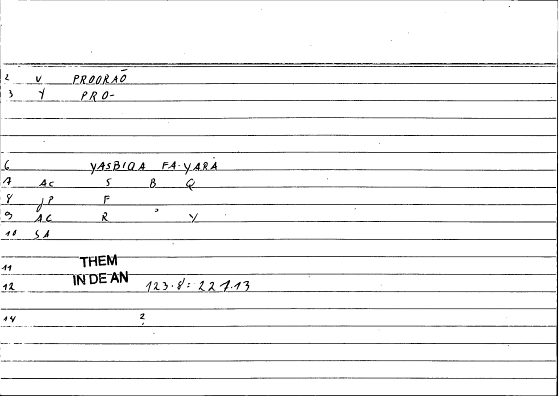 2 V PROORAŌ
3 Y PRO-
6 YASBIQA FA-YARĀ
7 AC S B Q
8 JP F
9 AC R ° Y
10 SA
11 THEM
IN DE AN
12 123.8: 227.13
14 2